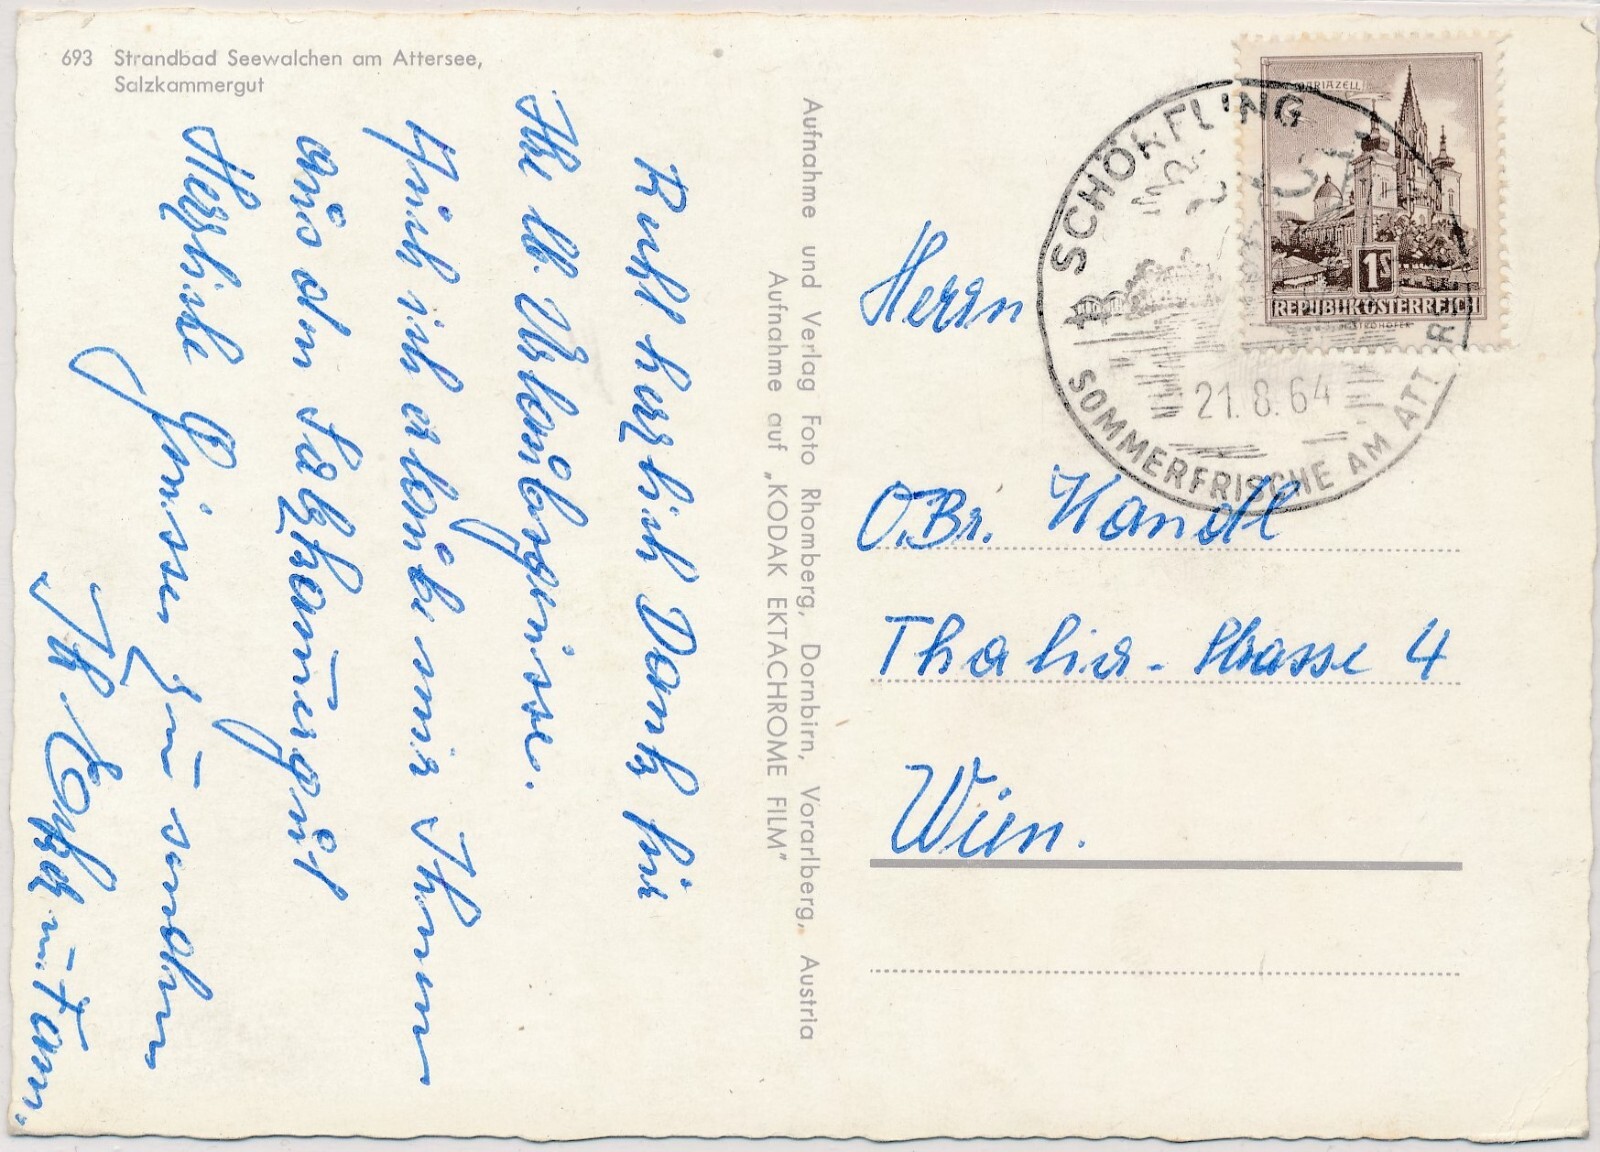 693 Strandbad Seewalchen am Attersee,
Salzkammergut
Recht herzlich Dank für
Ihre lb. Urlaubsgrüsse.
Auch ich erlaube mir Ihnen
aus dem Salzkammergut
Herzliche Grüsse zu senden
Ihr u. Fam.
Aufnahme und Verlag Foto Rhomberg, Dornbirn, Vorarlberg, Austria
Aufnahme auf „KODAK EKTACHROME FILM"
MARIAZELL
1S
REPUBLIK ÖSTERREICH
SCHÖRFLING
21.8.64
SOMMERFRISCHE AM ATTERSEE
Herrn
O.Br. Handl
Thalia-Strasse 4
Wien.